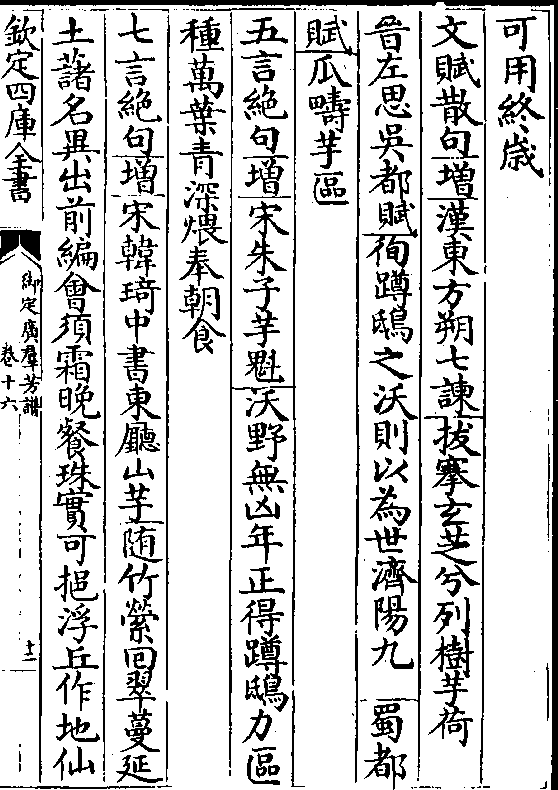 可用終歲
文賦散句增漢東方朔七諫拔搴玄芝兮列樹芋荷
晉左思吳都賦徇蹲鴟之沃則以為世濟陽九　蜀都
賦瓜疇芋區
五言絶句增宋朱子芋魁沃野無凶年正得蹲鴟力區
種萬葉青深煨奉朝食
七言絶句增宋韓琦中書東廳山芋随竹縈回翠蔓延
土藷名異出前編會須霜晚餐珠實可挹浮丘作地仙
欽定四庫全書
御定廣羣芳譜
卷十六
十二